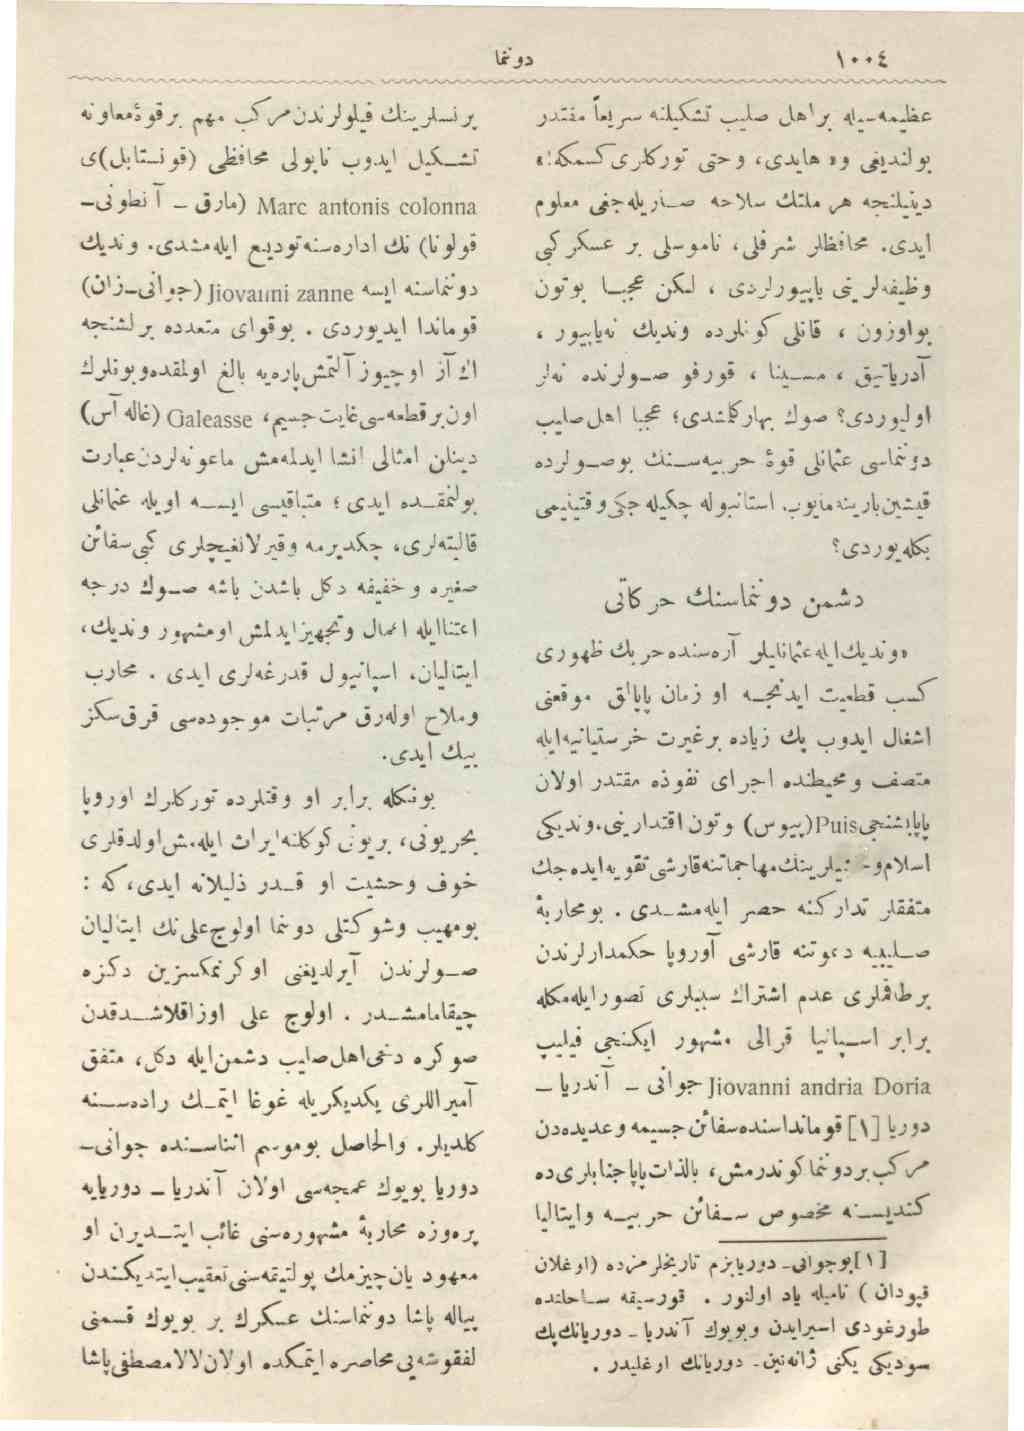 ١٠٠٤
دوننما
عظیمه‌سیله بر اهل صلیب تشکیلنه سریعاً مقتدر
بولندیغی و «هایدی، وحتی تورکلری کسمکه!»
دینیلنجه هر ملتك سلاحه صاریله‌جغی معلوم
ایدی. محافظلر شرفلی، ناموسلی بر عسکر کبی
وظیفه‌لرینی یاپیورلردی ، لکن عجبـا بوتون
بو اوزون ، قانلی کونلرده وندیك نه‌یاپیور ،
آدریاتیق ، مسـینا ، قورفو صـولرنده نه‌لر
اولیوردی؟ صوك بهار کلمشدی؛ عجبا اهل صلیب
دوننماسی عثمانلی قوهٔ حربیه‌سـنك بوصـولرده
قیشین بارینه‌مایوب، استانبوله چکیله‌جکی وقتینیمی
بکله‌یوردی؟
دشمن دوننماسنك حرکاتی
«وندیك ایله عثمانلیلر آره‌سنده حربك ظهوری
کسب قطعیت ایدنجـه او زمان پاپالق موقعنی
اشغال ایدوب پك زیاده بر غیرت خرستیانیه ایله
متصف و محیطنده اجرای نفوذه مقتدر اولان
پاپا بشنجی Puis (پیوس) وتون اقتدارینی، وندیکی
اسلام و- ‌یلرینك مهاجماتنه قارشی تقویه ایده‌جك
متفقلر تدارکنه حصر ایله‌مشـدی . بومحاربهٔ
صـلیبیه دعوتنه قارشی آوروپا حکمدارلرندن
بر طاقملری عدم اشتراك سببلری تصور ایله‌مکله
برابر اسـپانیا قرالی مشهور ایکنجی فیلیپ
Jiovanni andria Doria جوانی - آندریا -
دوریا [١] قومانداسنده سفائن جسیمه و عدیده‌دن
مرکب بر دوننما کوندرمش، بالذات پاپا جنابلری ده
کندیسـنه مخصوص سـفائن حربیـه و ایتالیا
[١] بو جوانی- دوریا بزم تاریخلرمزده (اوغلان
قپودان) نامیله یاد اولنور . قورسیقه سـاحلنده
طورغودی اسیر ایدن و بویوك آندریا- دوریانك پك
سودیکی یکنی ژانه‌تین- دوریانك اوغلیدر .
پرنسلرینك قیلولرندن مرکب مهم بر قوهٔ معاونه
تشـکیل ایدوب ناپولی محافظی (قونستابل)ی
Marc antonis colonna (مارق - آنطونی-
قولونا) نك اداره‌سنه تودیع ایله‌مشدی. وندیك
دوننماسنه ایسه Jiovanni zanne (جوانی-زان)
قوماندا ایدیوردی . بوقوای متعدده برلشنجه
اك آز اوچیوز آلتمش پاره‌یه بالغ اولمقده و بونلرك
اون بر قطعه‌سی غایت جسیم، Galeasse (غاله آس)
دینلن امثالی انشا ایدلمه‌مش ماعونه‌لردن عبارت
بولنمقـده ایدی ؛ متباقیسی ایسـه اویله عثمانلی
قالیته‌لری، چکدیرمه و قیرلانغیچلری کبی سفائن
صغیره و خفیفه دکل باشدن باشه صـوك درجه
اعتنا ایله اعمال و تجهیز ایدلمش اومشهور وندیك،
ایتالیان، اسپانیول قدرغه‌لری ایدی . محارب
وملاح اوله‌رق مرتبات موجوده‌سی قرق سکز
بیك ایدی.
بونکله برابر او وقتلرده تورکلرك اوروپا
بحریونی، بریونی کوکلنه ایراث ایله‌مش اولدقلری
خوف وحشیت او قـدر ذلیلانه ایدی، که :
بومهیب و شوکتلی دوننما اولوج علی نك ایتالیان
صـولرندن آیرلدیغنی اوکرنمکسزین دکزه
چیقامامشـدر . اولوج علی اوزاقلاشـدقدن
صوکره دخی اهل صلیب دشمن ایله دکل، متفق
آمیراللری یکدیکریله غوغا ایتمـك راده‌سـنه
کلدیلر. والحاصل بوموسم اثناسـنده جوانی-
دوریا بویوك عمجه‌سی اولان آندریا- دوریایه
پره‌وزه محاربهٔ مشهوره‌سنی غائب ایتـدیرن او
معهود یان چیزمك پولتیقه‌سنی تعقیب ایتدیکندن
پیاله پاشا دوننماسنك عسکرك بر بویوك قسمنی
لفقوشه‌یی محاصره ایتمکده اولان لالا مصطفی پاشا